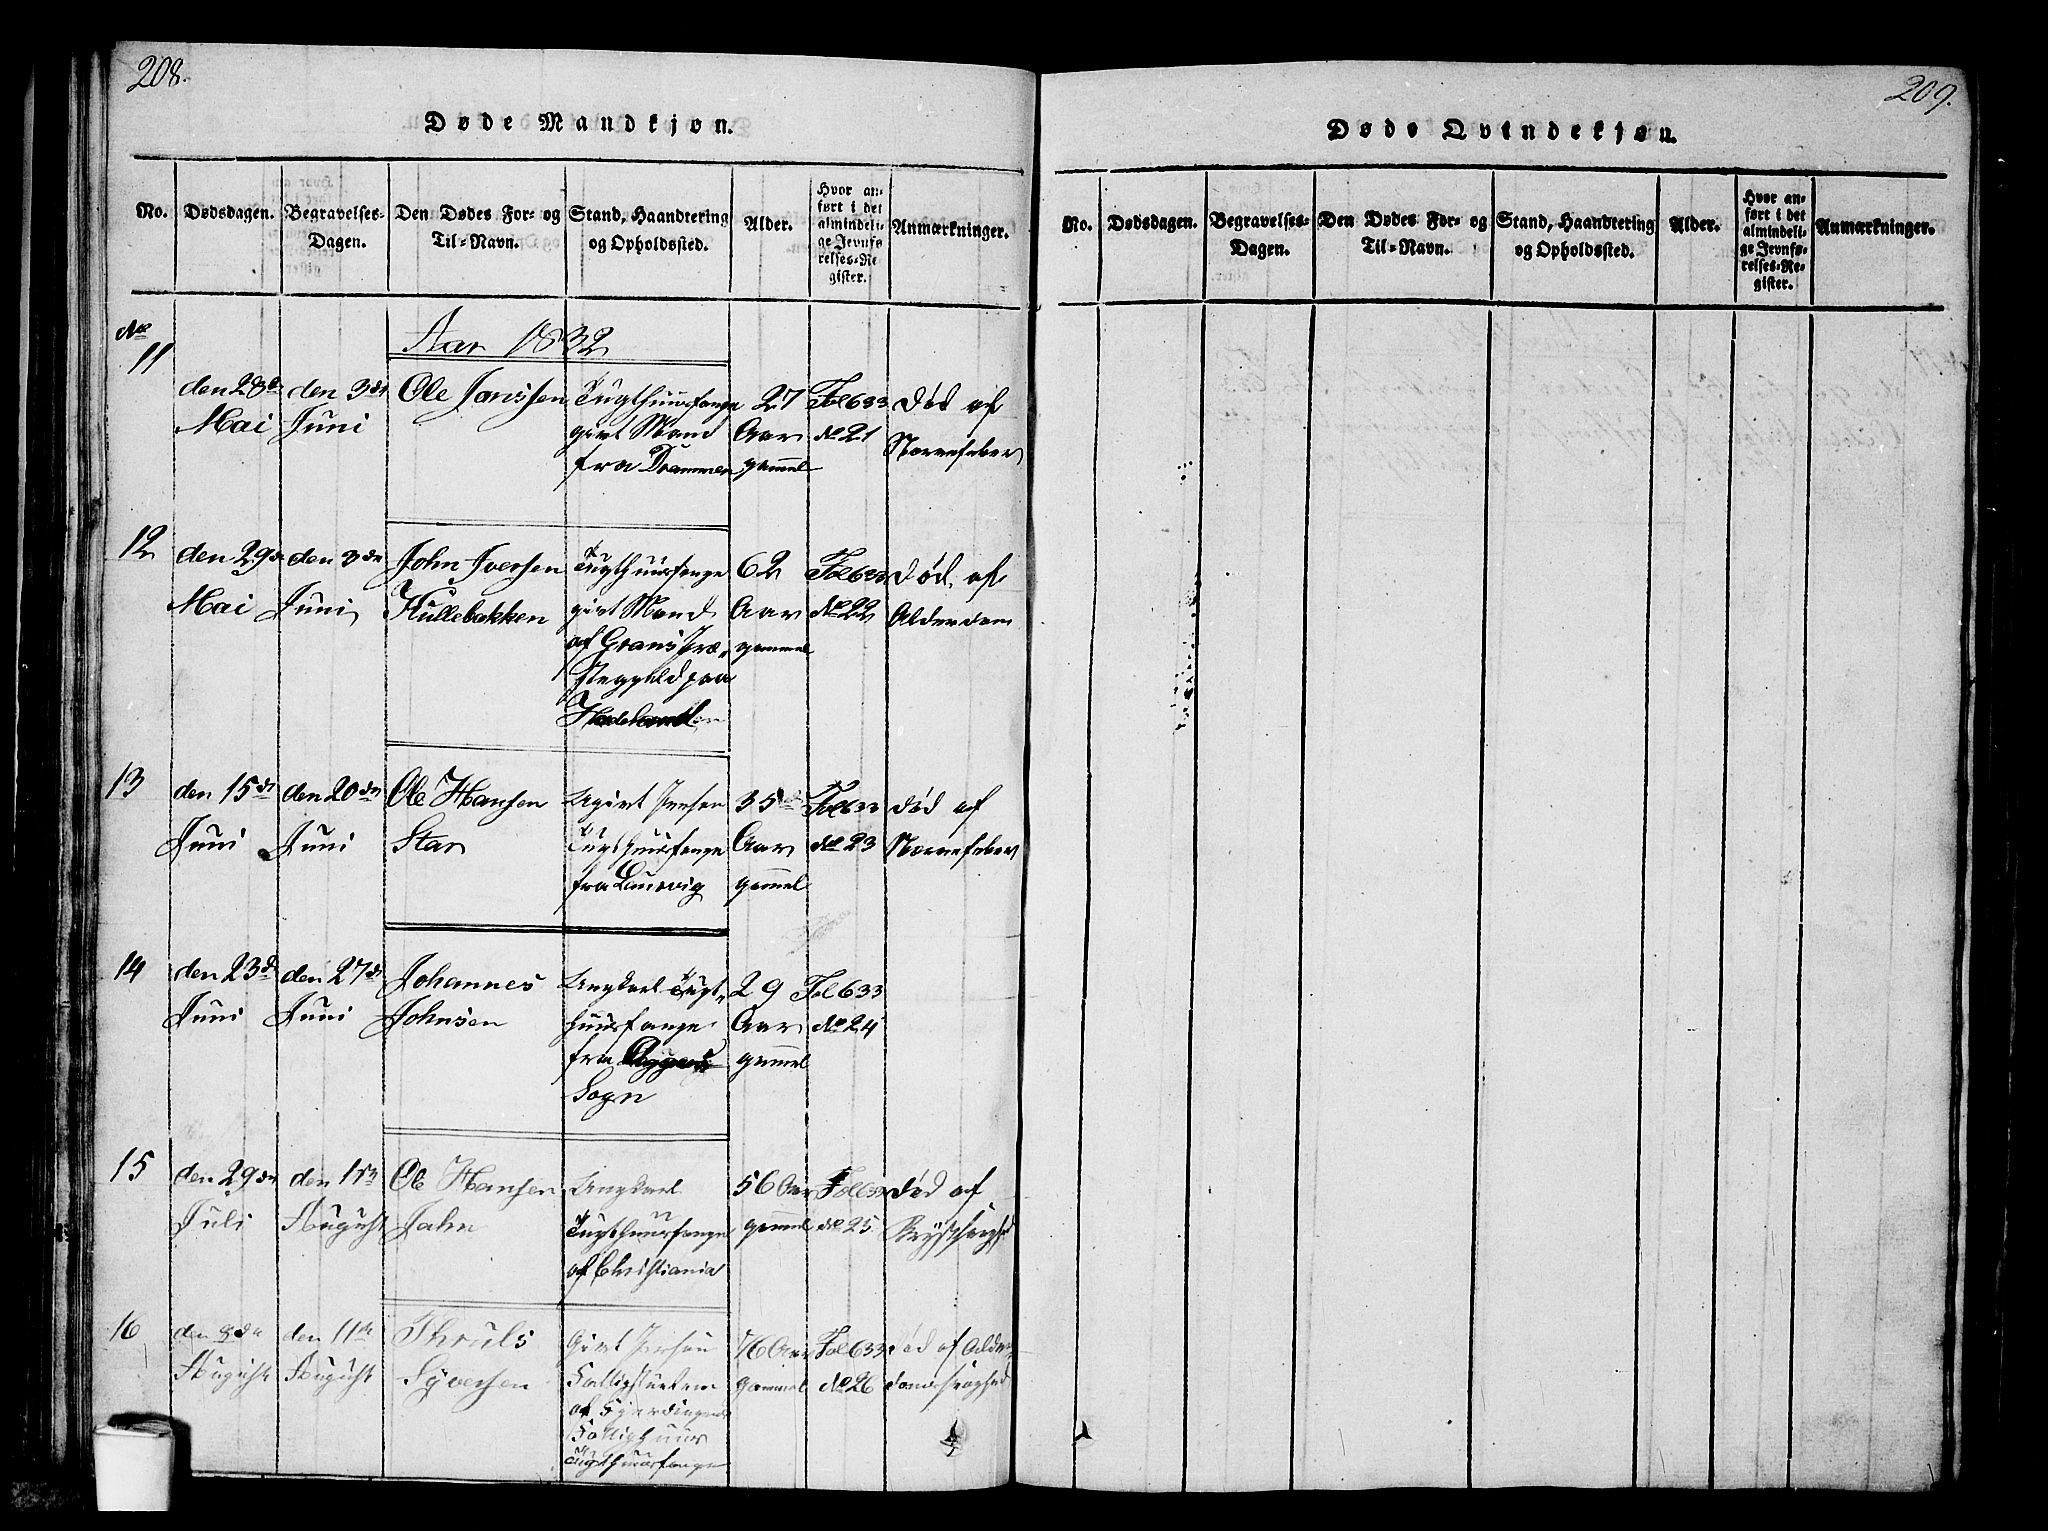 208.
Døde Mandkjøn.
No.
Dødsdagen.
Begravelses-
Dagen.
Den Dødes For- og
Til-Navn.
Stand, Haandtering
og Opholdssted.
Alder.
Hvor an-
ført i det
almindeli-
ge Jevnfø-
relses-Re-
gister.
Anmærkninger.
No
Aar 1832
11
den 28de
Mai
den 3die
Juni
Ole Janssen
Tugthuusfange
givt Mand
fra Drammen
27
Aar
gammel
Fol 633
No 21
død af
Nervefeber
12
den 29de
Mai
den 3die
Juni
John Iversen
Hullebakken
Tugthuusfange
givt Mand
af Grans Præ„
stegjeld paa
Hadeland
62
Aar
gammel
Fol 633
No 22
død af
Alderdom
13
den 15de
Juni
den 20de
Juni
Ole Hansen
Star
Ugivt Person
Tugthuusfange
fra Laurvig
35
Aar
gammel
Fol 633
No 23
død af
Nervefeber
14
den 23de
Juni
den 27de
Juni
Johannes
Johnsen
Ungkarl Tugt„
huusfange
fra Aggers
Sogn
29
Aar
gammel
Fol 633
No 24
15
den 29de
Juli
den 1ste
August
Ole Hansen
Jahn
Ungkarl
Tugthuusfange
af Christiania
56 Aar
gammel
Fol 633
No 25
død af
Brystsyghed
16
den 8de
August
den 11te
August
Thruls
Syversen
Givt Person
Fattiglem
af Gjerdingens
Fattighuus
Tugthuusfange
76 Aar
gammel
Fol 633
No 26
død af Alder„
domssvaghed
209.
Døde Qvindekjøn.
No.
Dødsdagen.
Begravelses-
Dagen.
Den Dødes For- og
Til-Navn.
Stand, Haandtering
og Opholdssted.
Alder.
Hvor an-
ført i det
almindeli-
ge Jevnfø-
relses-Re-
gister.
Anmærkninger.